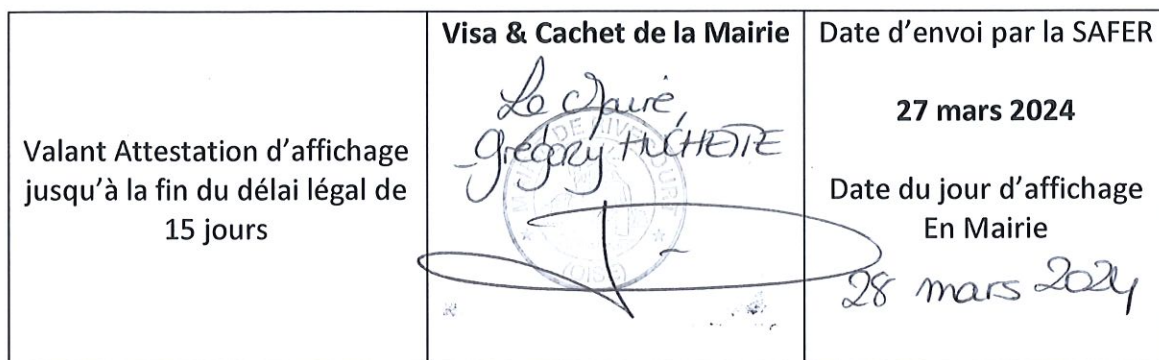 Valant Attestation d'affichage
jusqu'à la fin du délai légal de
15 jours
Visa & Cachet de la Mairie
Le Maire,
Grégory HUCHETTE
(OISE)
Date d'envoi par la SAFER
27 mars 2024
Date du jour d'affichage
En Mairie
28 mars 2024